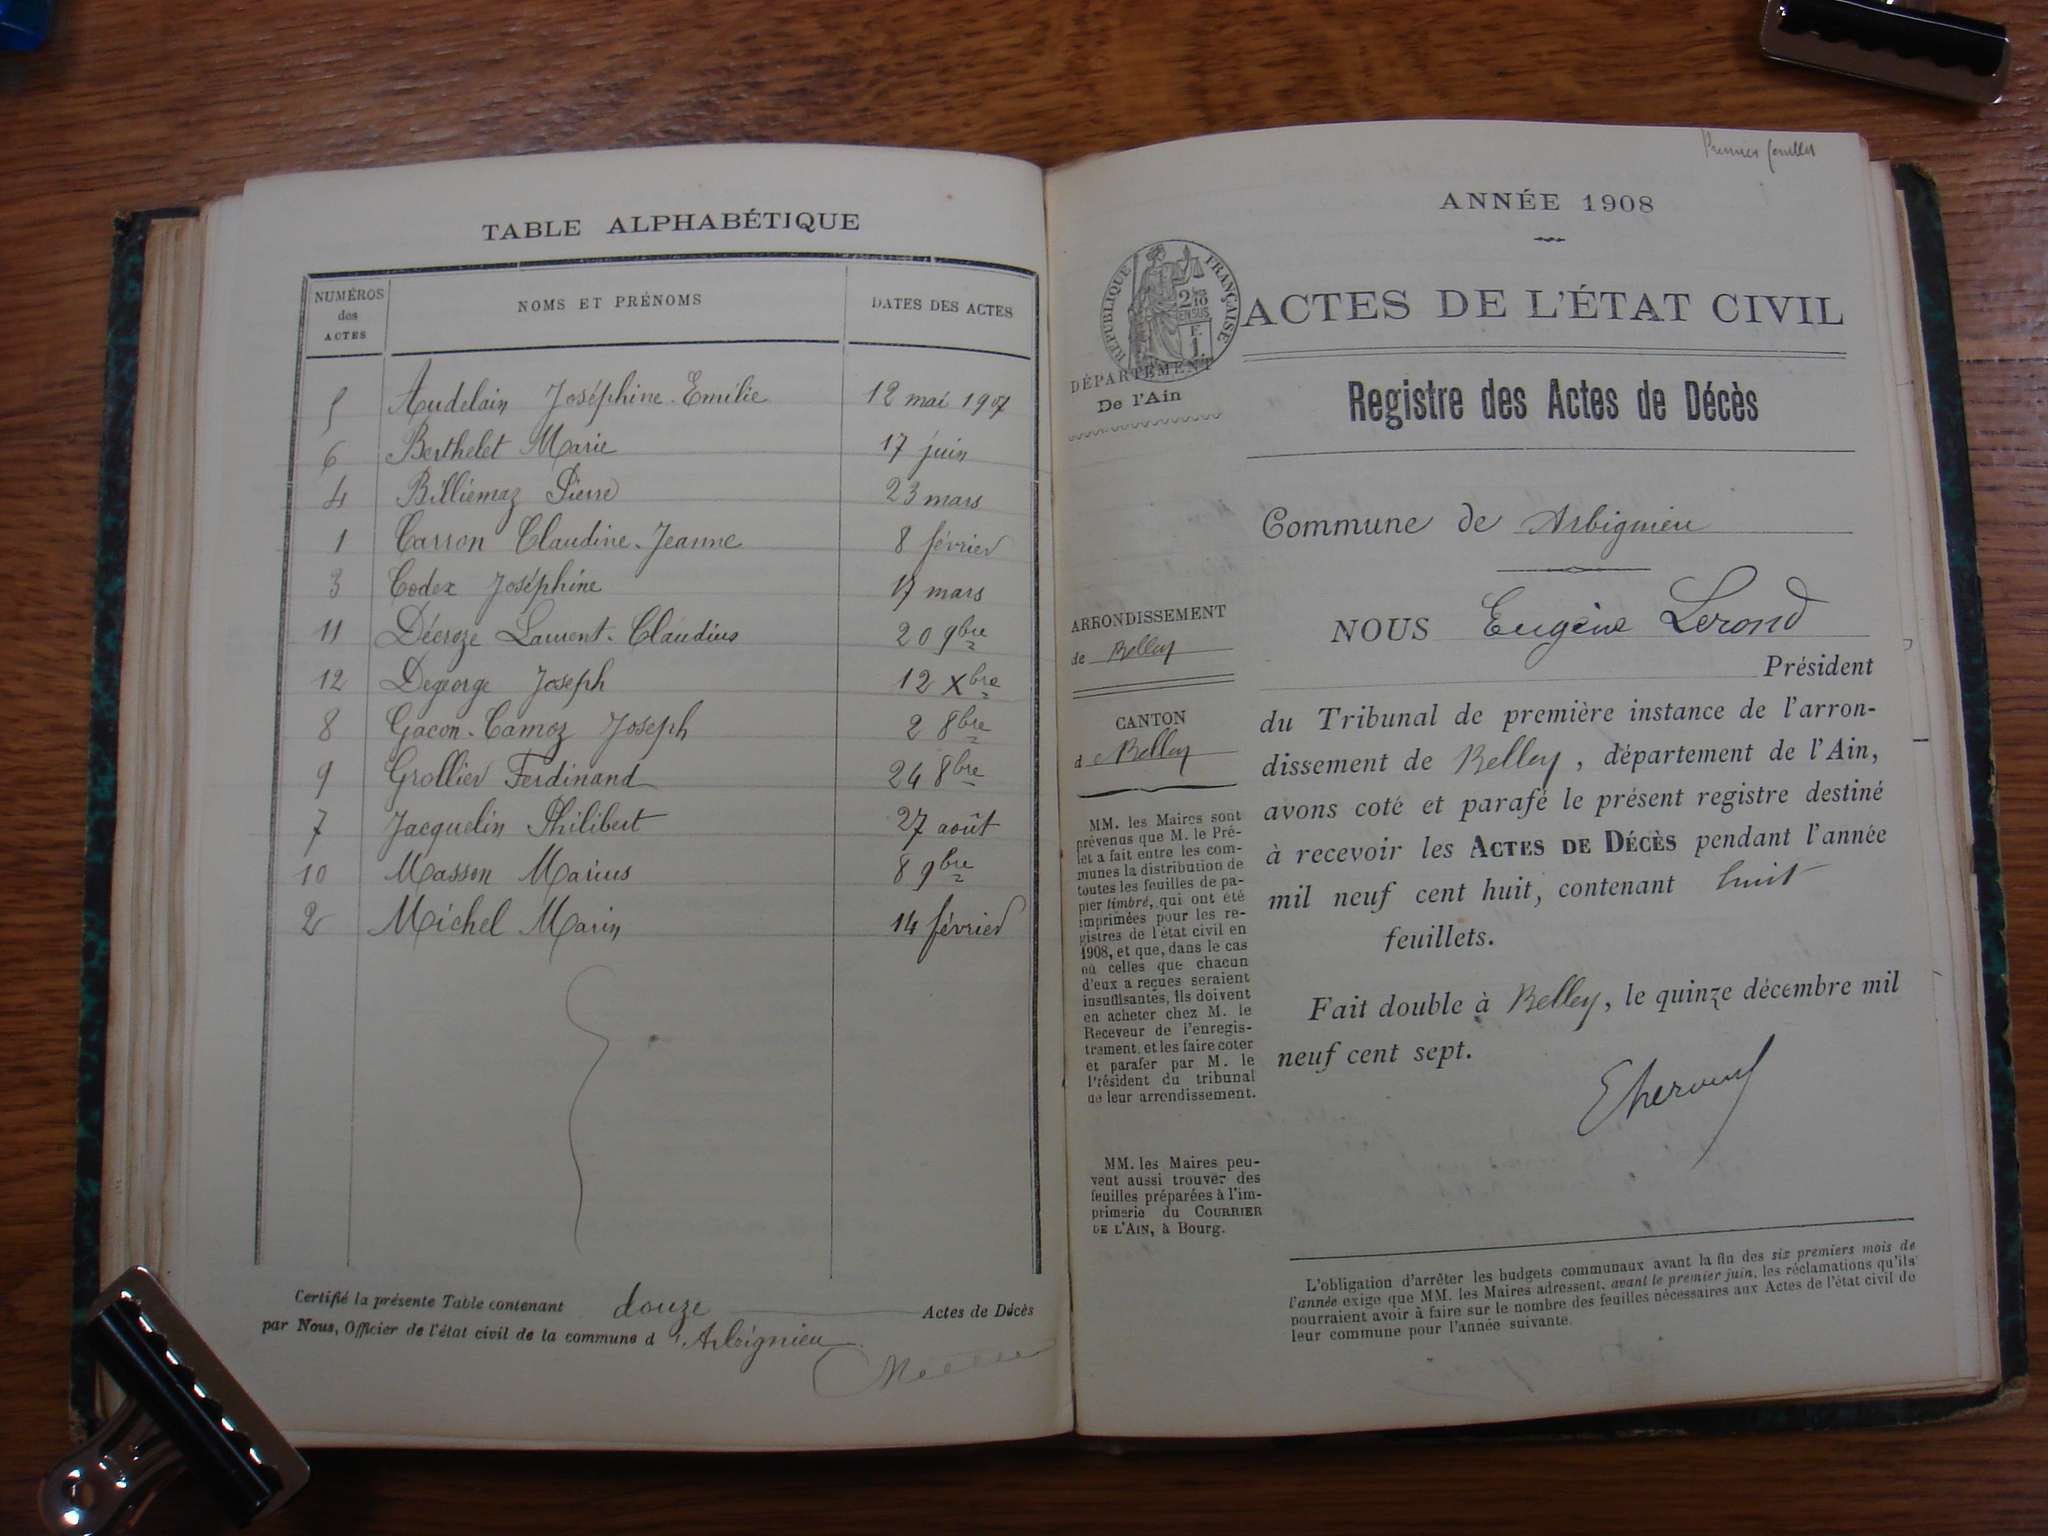 TABLE ALPHABÉTIQUE
NUMÉROS des ACTES NOMS ET PRÉNOMS DATES DES ACTES
5 Audelain Joséphine-Emilie 12 mai 1907
6 Berthelet Marie 17 juin
4 Billiémaz Pierre 23 mars
1 Carron Claudine-Jeanne 8 février
3 Codex Joséphine 17 mars
11 Décroze Laurent-Claudius 20 9bre
12 Degeorge Joseph 12 Xbre
8 Gacon-Camoz Joseph 2 8bre
9 Grollier Ferdinand 24 8bre
7 Jacquelin Philibert 27 août
10 Masson Marius 8 9bre
2 Michel Marin 14 février
Certifié la présente Table contenant douze Actes de Décès
par Nous, Officier de l'état civil de la commune d'Arbignieu
Premier feuillet
ANNÉE 1908
RÉPUBLIQUE FRANÇAISE
2/10 EN SUS
ACTES DE L'ÉTAT CIVIL
DÉPARTEMENT
De l'Ain
Registre des Actes de Décès
Commune de Arbignieu
ARRONDISSEMENT
de Belley
CANTON
de Belley
MM. les Maires sont
prévenus que M. le Pré-
fet a fait entre les com-
munes la distribution de
toutes les feuilles de pa-
pier timbré, qui ont été
imprimées pour les re-
gistres de l'état civil en
1908, et que, dans le cas
où celles que chacun
d'eux a reçues seraient
insuffisantes, ils doivent
en acheter chez M. le
Receveur de l'enregis-
trement, et les faire coter
et parafer par M. le
Président du tribunal
de leur arrondissement.
MM. les Maires peu-
vent aussi trouver des
feuilles préparées à l'im-
primerie du COURRIER
DE L'AIN, à Bourg.
NOUS Eugène Lerond
Président
du Tribunal de première instance de l'arron-
dissement de Belley, département de l'Ain,
avons coté et parafé le présent registre destiné
à recevoir les ACTES DE DÉCÈS pendant l'année
mil neuf cent huit, contenant huit
feuillets.
Fait double à Belley, le quinze décembre mil
neuf cent sept.
L'obligation d'arrêter les budgets communaux avant la fin des six premiers mois de
l'année exige que MM. les Maires adressent, avant le premier juin, les réclamations qu'ils
pourraient avoir à faire sur le nombre des feuilles nécessaires aux Actes de l'état civil de
leur commune pour l'année suivante.